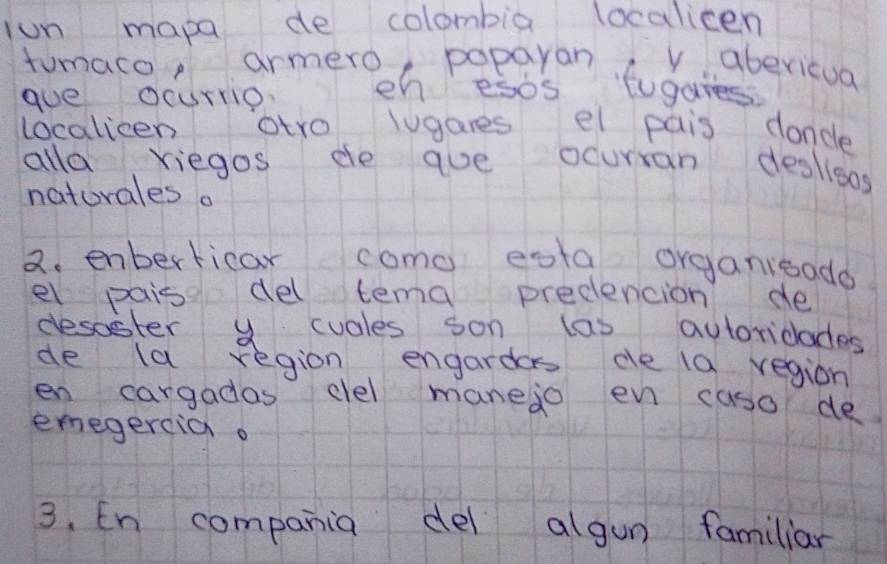 1un mapa de colombia localicen
tumaco, armero, popayan, y abericua
que ocurrio. en esos tugares
localicen otro lugares el pais donde
alla riegos de que ocurran deslisos
naturales.
2. enberticar como esta organisado
el pais del tema predencion de
desaster y cuales son las autoridades
de la region engardas de la region
en cargadas del manejo en caso de
emegercia.
3. En compañia del algun familiar